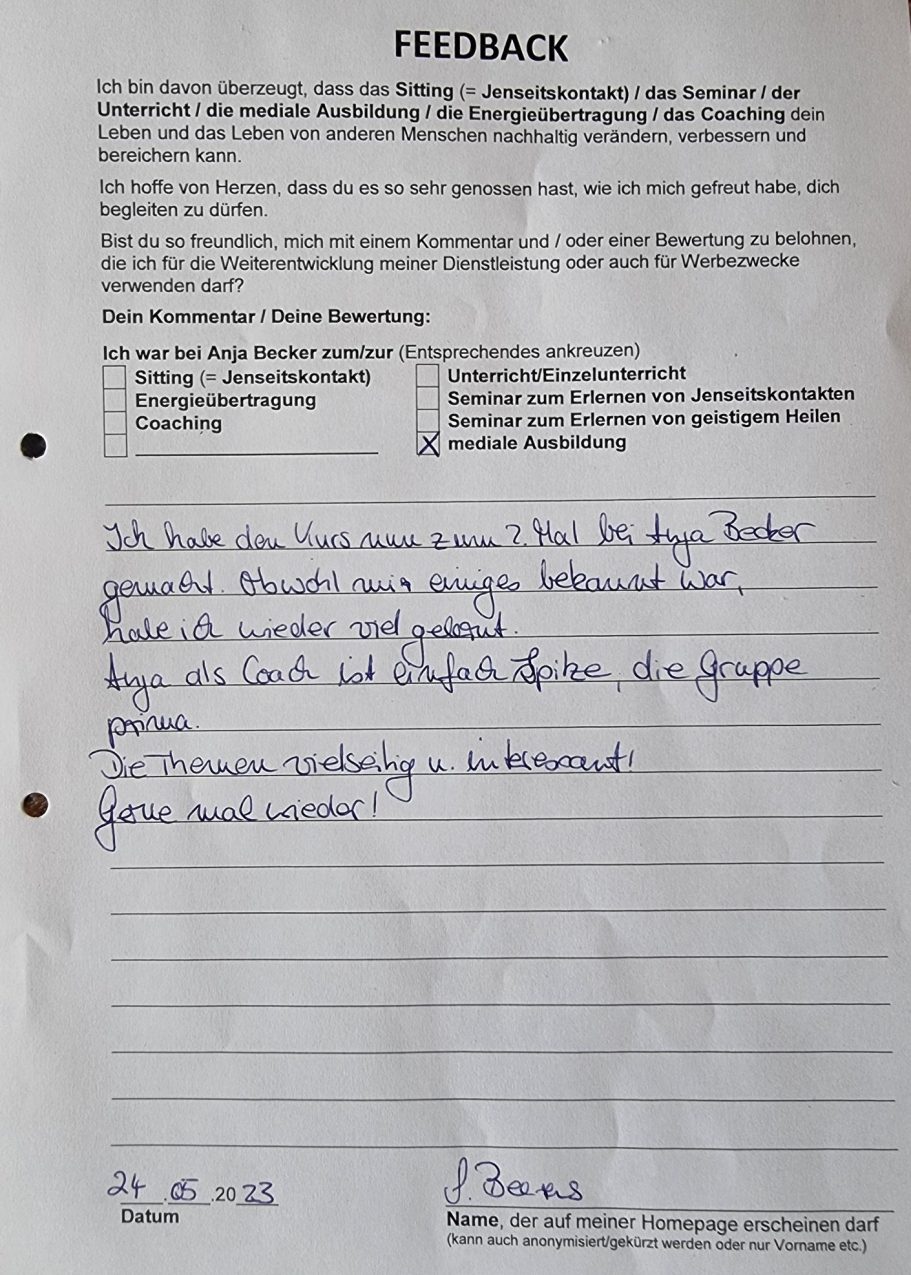 FEEDBACK
Ich bin davon überzeugt, dass das Sitting (= Jenseitskontakt) / das Seminar / der
Unterricht / die mediale Ausbildung / die Energieübertragung / das Coaching dein
Leben und das Leben von anderen Menschen nachhaltig verändern, verbessern und
bereichern kann.
Ich hoffe von Herzen, dass du es so sehr genossen hast, wie ich mich gefreut habe, dich
begleiten zu dürfen.
Bist du so freundlich, mich mit einem Kommentar und / oder einer Bewertung zu belohnen,
die ich für die Weiterentwicklung meiner Dienstleistung oder auch für Werbezwecke
verwenden darf?
Dein Kommentar / Deine Bewertung:
Ich war bei Anja Becker zum/zur (Entsprechendes ankreuzen)
Sitting (= Jenseitskontakt)
Energieübertragung
Coaching
Unterricht/Einzelunterricht
Seminar zum Erlernen von Jenseitskontakten
Seminar zum Erlernen von geistigem Heilen
X mediale Ausbildung
Ich habe den Kurs nun zum 2. Mal bei Anja Becker
gemacht. Obwohl mir einiges bekannt war,
habe ich wieder viel gelernt.
Anja als Coach ist einfach Spitze, die Gruppe
prima.
Die Themen vielseitig u. interessant!
Gerne mal wieder!
24.05.2023
Datum
Name, der auf meiner Homepage erscheinen darf
(kann auch anonymisiert/gekürzt werden oder nur Vorname etc.)